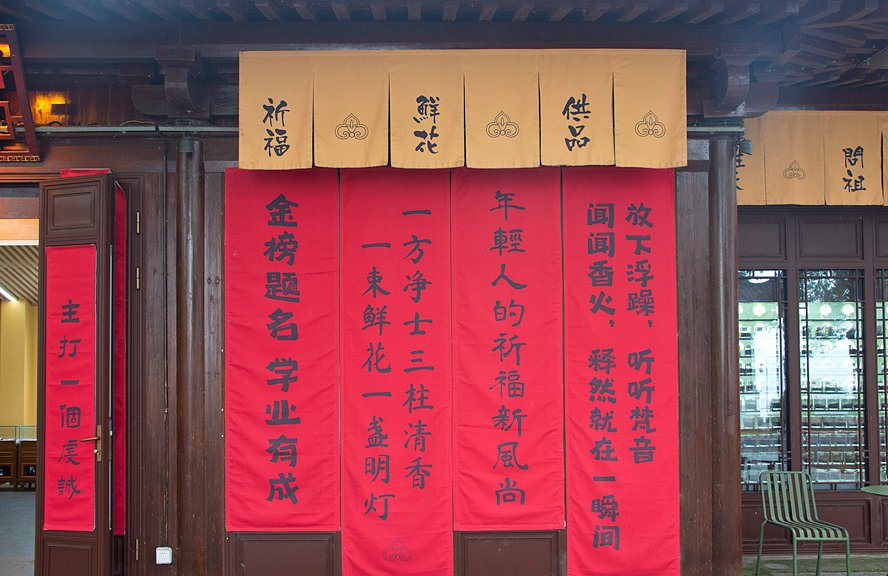 祈福
鲜花
供品
問祖
放下浮躁，听听梵音
闻闻香火，释然就在一瞬间
年輕人的祈福新風尚
一方净士三柱清香
一束鲜花一盏明灯
金榜题名 学业有成
主打一個虔誠